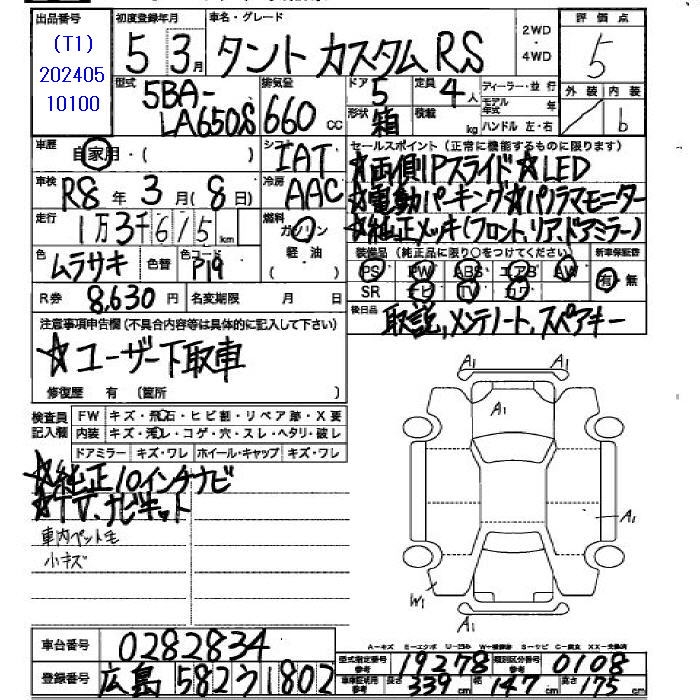 出品番号 初度登録年月 車名・グレード 2WD・4WD 評価点
(T1)
202405
10100
5 3月 タント カスタム RS 5
型式 排気量 ドア 定員 ディーラー・並行 外装 内装
5BA-LA650S 660cc 5 4人 モデル年式 年
形状 箱 積載 kg ハンドル 左・右 b
車歴 自家用・( ) シフト IAT セールスポイント(正常に機能するものに限ります)
☆両側Pスライド☆LED
車検 R8年3月(8日) 冷房 AAC ☆電動パーキング☆パノラマモニター
走行 1万3千615km 燃料 ガソリン・軽油 ☆純正メッキ(フロント,リア,ドアミラー)
色 ムラサキ 色替 色コード P19 装備品(純正品に限り○をつけてください) 新車保証書
PS PW ABS エアB AW 有・無
SR ナビ TV カワ
R券 8,630円 名変期限 月 日 後日品 取説,メンテノート,スペアキー
注意事項申告欄(不具合内容等は具体的に記入して下さい)
☆ユーザー下取車
修復歴 有 (箇所 )
検査員記入欄 FW キズ・飛石・ヒビ割・リペア跡・X要
内装 キズ・汚レ・コゲ・穴・スレ・ヘタリ・破レ
ドアミラー キズ・ワレ ホイール・キャップ キズ・ワレ
☆純正10インチナビ
☆TV,ナビキット
車内ペット毛
小キズ
A1
A1
A1
W1
A1
車台番号 0282834
登録番号 広島 582 う 1802
型式指定番号 参考 19278 類別区分番号 参考 0108
車体証明用 参考 長さ 339cm 幅 147cm 高さ 175cm